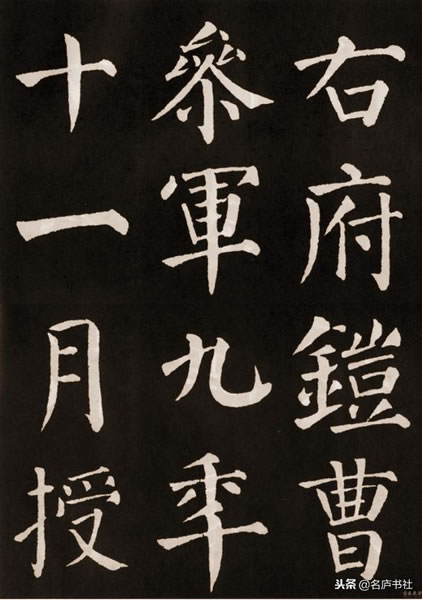 右府鎧曹
參軍九年
十一月授
头条 @名庐书社